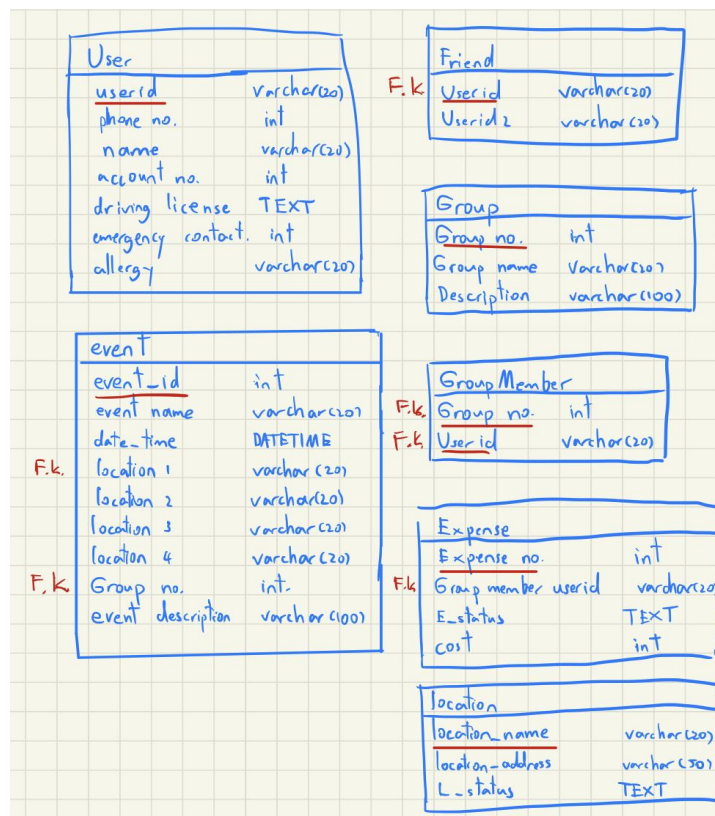 User
userid varchar(20)
phone no. int
name varchar(20)
account no. int
driving license TEXT
emergency contact. int
allergy varchar(20)
event
event_id int
event name varchar(20)
date_time DATETIME
F.k. location 1 varchar(20)
location 2 varchar(20)
location 3 varchar(20)
location 4 varchar(20)
F.K Group no. int.
event description varchar(100)
Friend
F.K Userid varchar(20)
Userid2 varchar(20)
Group
Group no. int
Group name Varchar(20)
Description varchar(100)
Group Member
F.k. Group no. int
F.k. User id varchar(20)
Expense
Expense no. int
F.k Group member userid varchar(20
E_status TEXT
cost int
location
location_name varchar(20)
location-address varchar(50)
L_status TEXT